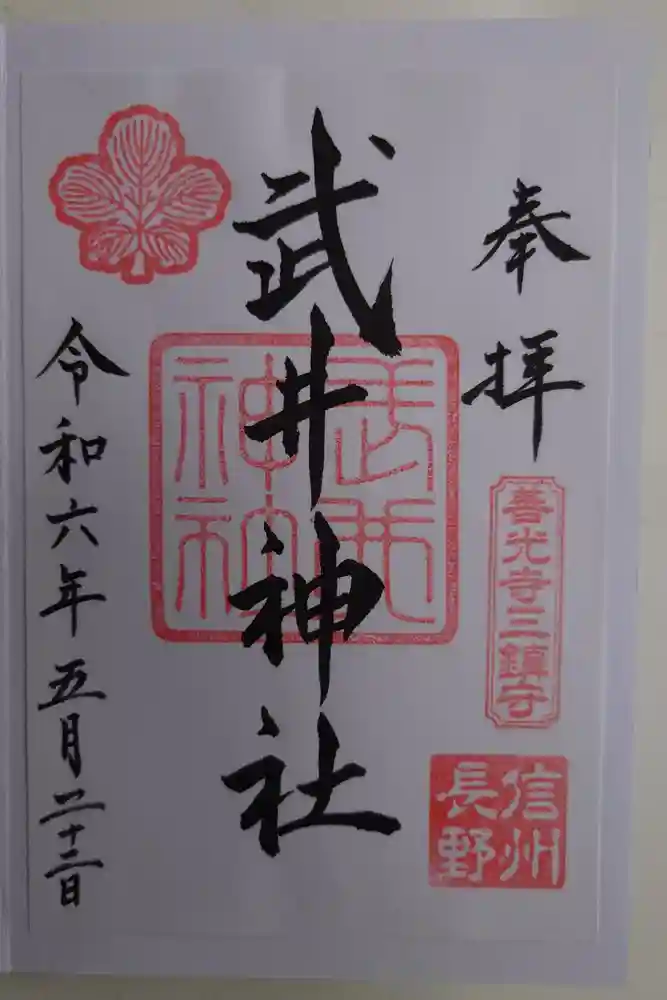 奉拝
善光寺三鎮守
信州
長野
武井神社
武井
神社
令和六年五月二十三日